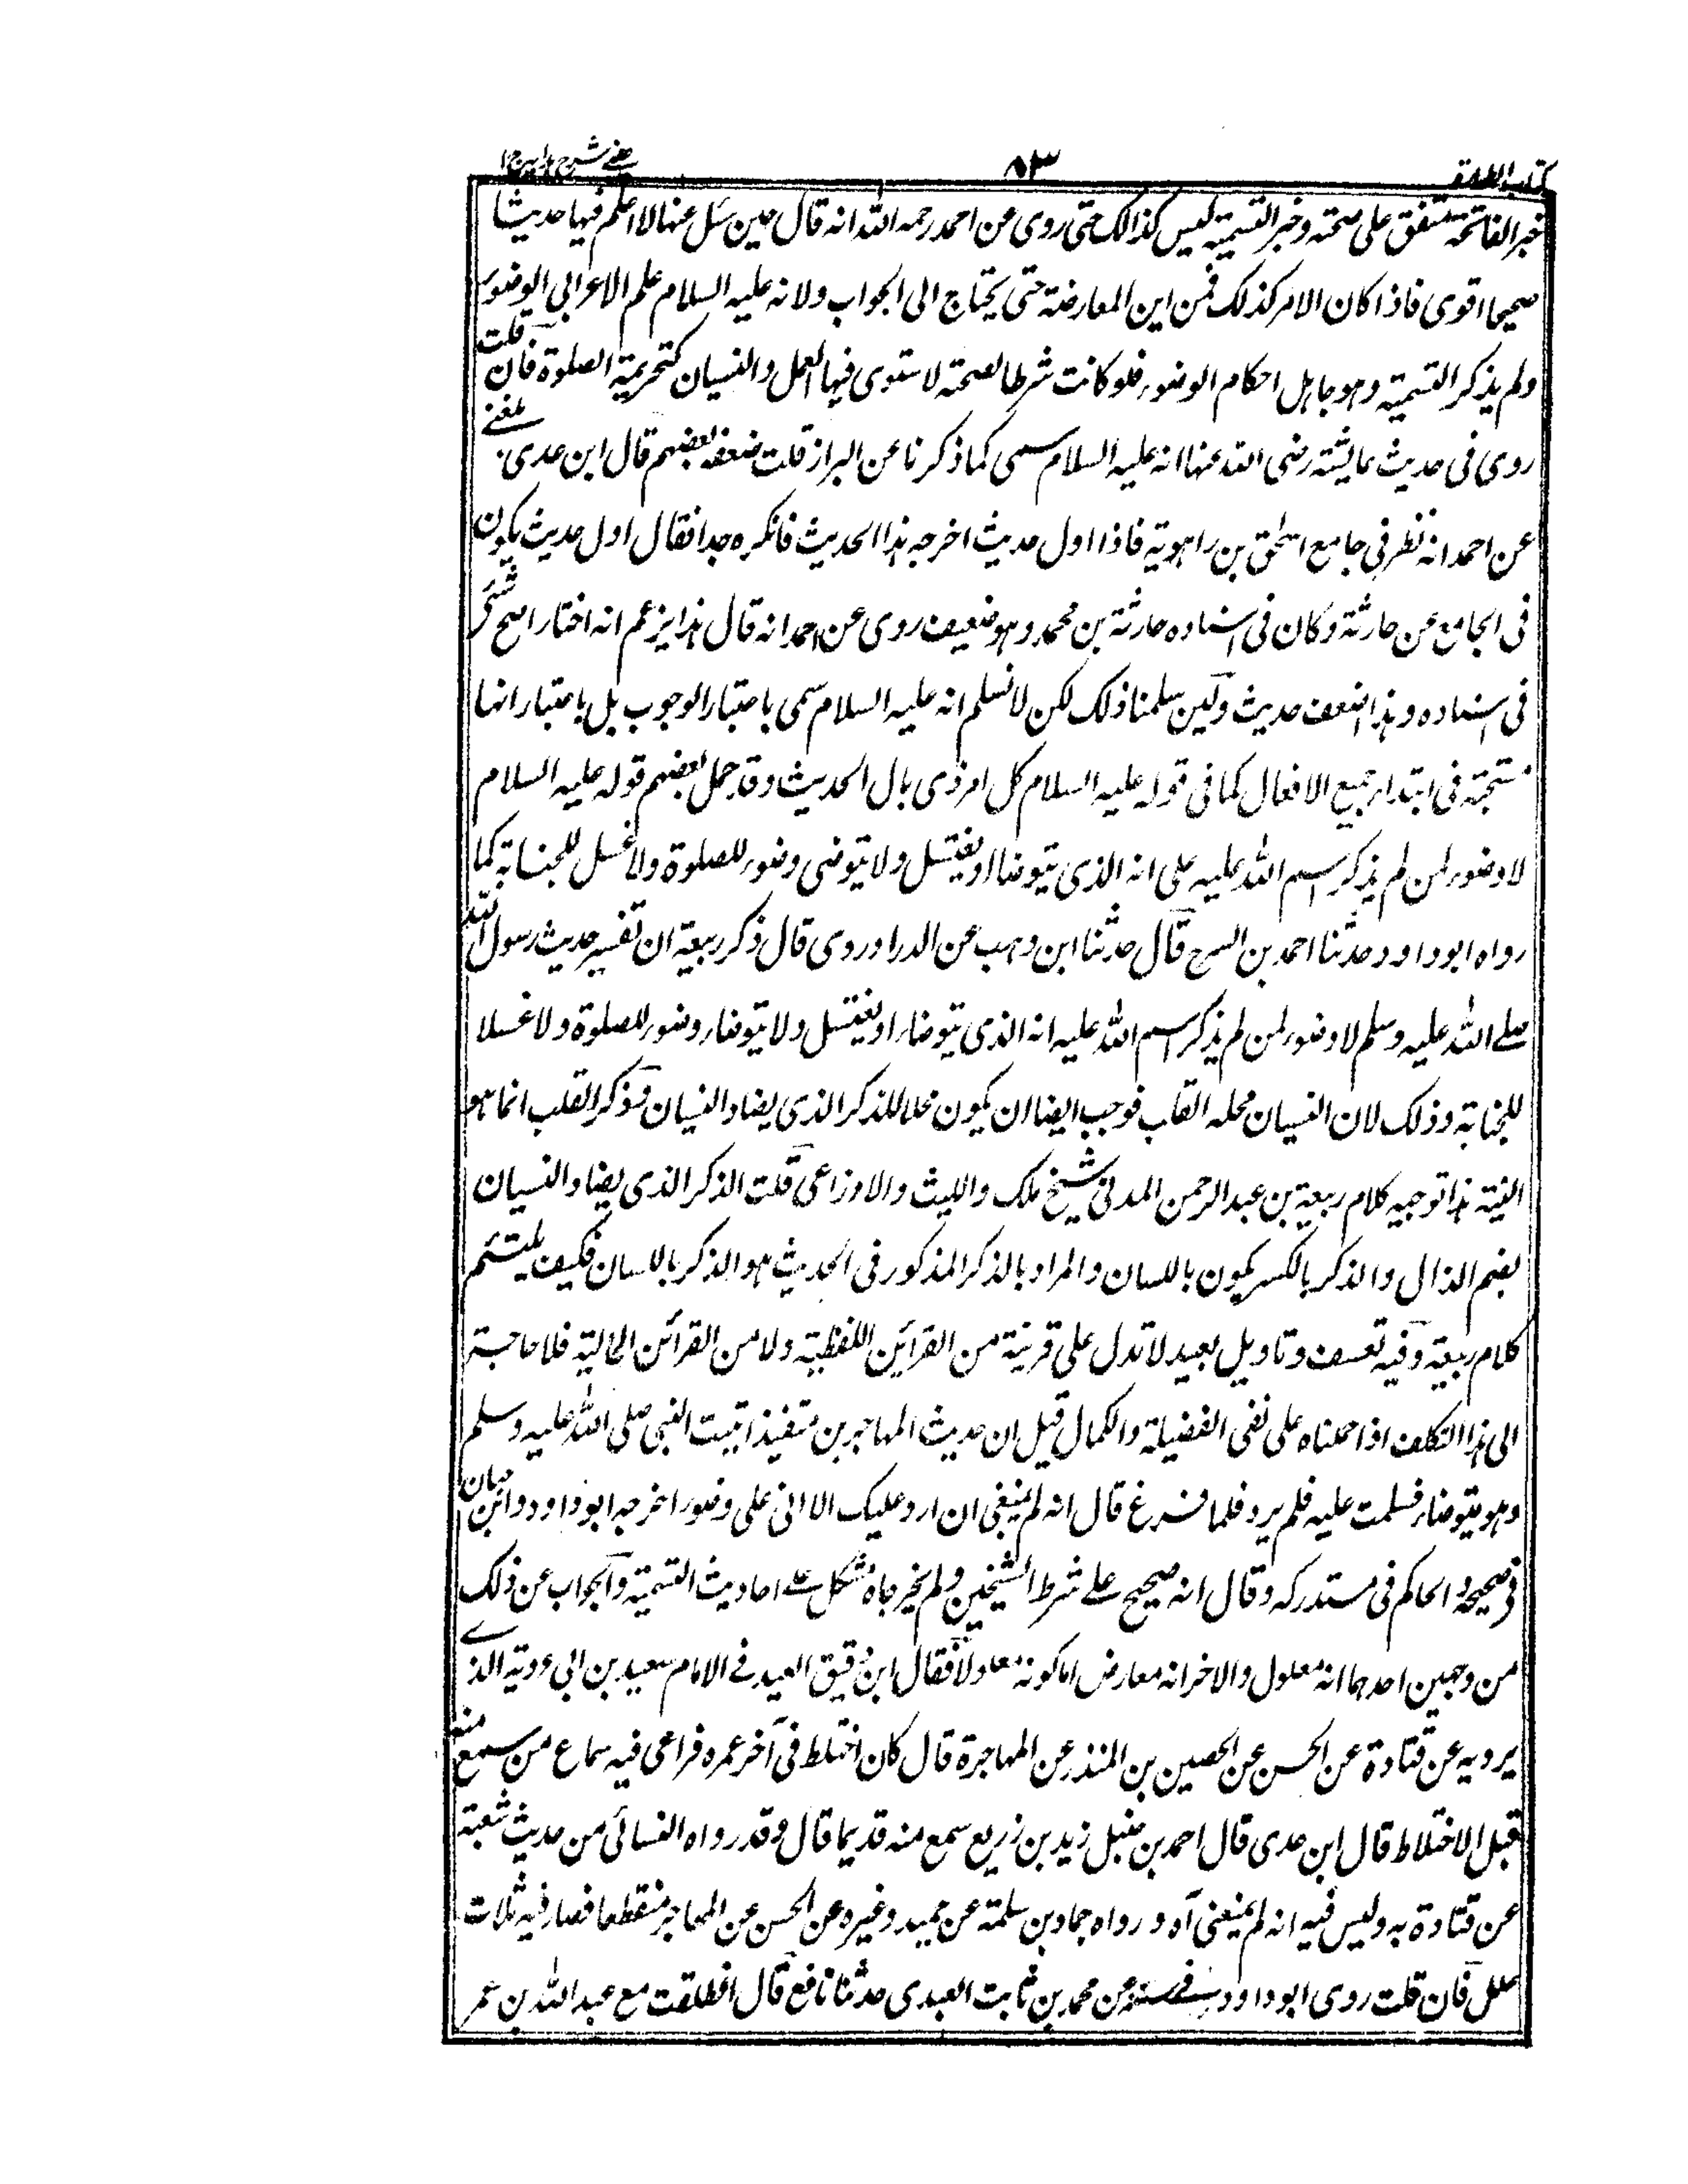 كتاب الطهارة
٥٣
عينى شرح هدايه ج ١
خبر الفاتحة متفق على صحته وخبر التسمية ليس كذالك حتى روى عن احمد رحمه الله انه قال حين سئل عنها لا اعلم فيها حديثا
صحيحا اقوى فاذا كان الامر كذلك فمن اين المعارضة حتى يحتاج الى الجواب ولانه عليه السلام علم الاعرابى الوضوء
ولم يذكر التسمية وهو جاهل احكام الوضوء فلو كانت شرطا لصحته لاستوى فيها العمل والنسيان كتحريمة الصلوة فان قلت
روى فى حديث عايشة رضى الله عنها انه عليه السلام سمى كما ذكرنا عن البزاز قلت ضعفه بعضهم قال ابن عدى بلغنى
عن احمد انه نظر فى جامع اسحق بن راهوية فاذا اول حديث اخرجه هذا الحديث فانكره جدا فقال اول حديث يكون
فى الجامع عن حارثة وكان فى اسناده حارثة بن محمد وهو ضعيف روى عن احمد انه قال هذا يزعم انه اختار اصح شئى
فى اسناده وهذا اضعف حديث ولئن سلمنا ذلك لكن لا نسلم انه عليه السلام سمى باعتبار الوجوب بل باعتبار انها
مستحبة فى ابتداء جميع الافعال كما فى قوله عليه السلام كل امر ذى بال الحديث وقد حمل بعضهم قوله عليه السلام
لا وضوء لمن لم يذكر اسم الله عليه على انه الذى يتوضا او يغتسل ولا يتوضى وضوء للصلوة ولا غسل للجنابة كما
رواه ابو داود حدثنا احمد بن السرح قال حدثنا ابن وهب عن الدراوردى قال ذكر ربيعة ان تفسير حديث رسول الله
صلے الله عليه وسلم لا وضوء لمن لم يذكر اسم الله عليه انه الذى يتوضاء او يغتسل ولا يتوضاء وضوء للصلوة ولا غسلا
للجنابة وذلك لان النسيان محله القلب فوجب ايضا ان يكون محلا للذكر الذى يضاد النسيان وذكر القلب انما هو
النية هذا توجيه كلام ربيعة بن عبد الرحمن المدنى شيخ ملك والليث والاوزاعى قلت الذكر الذى يضاد النسيان
بضم الذال والذكر بالكسر يكون باللسان والمراد بالذكر المذكور فى الحديث هو الذكر بالاسان فكيف يلتئم
كلام ربيعة وفيه تعسف وتاويل بعيد لا تدل على قرينة من القرائن اللفظية ولا من القرائن الحالية فلا حاجة
الى هذا التكلف اذا حملناه على نفى الفضيلة والكمال قيل ان حديث المهاجر بن متفيذ اتيت النبى صلى الله عليه وسلم
وهو يتوضاء فسلمت عليه فلم يرد فلما فرغ قال انه لم يمنعنى ان ارد عليك الا انى على وضوء اخرجه ابو داود وابن حبان
فى صحيحه والحاكم فى مستدركه وقال انه صحيح علے شرط الشيخين ولم يخرجاه مشكل علے احاديث التسمية والجواب عن ذلك
من وجهين احدهما انه معلول والاخر انه معارض اما كونه معلولا فقال ابن دقيق العيد فے الامام سعيد بن ابى عروبة الذے
يرويه عن قتادة عن الحسن عن الحصين بن المنذر عن المهاجرة قال كان اختلط فى آخر عمره فراعى فيه سماع من سمع منه
قبل الاختلاط قال ابن عدى قال احمد بن حنبل زيد بن زريع سمع منه قديما قال وقد رواه النسائى من حديث شعبة
عن قتادة به وليس فيه انه لم يمنعنى آه ورواه حماد بن سلمة عن حميد وغيره عن الحسن عن المهاجر منقطعا فصار فيه ثلاث
علل فان قلت روى ابو داود فے سننه عن محمد بن ثابت العبدى حدثنا نافع قال انطلقت مع عبد الله بن عمر